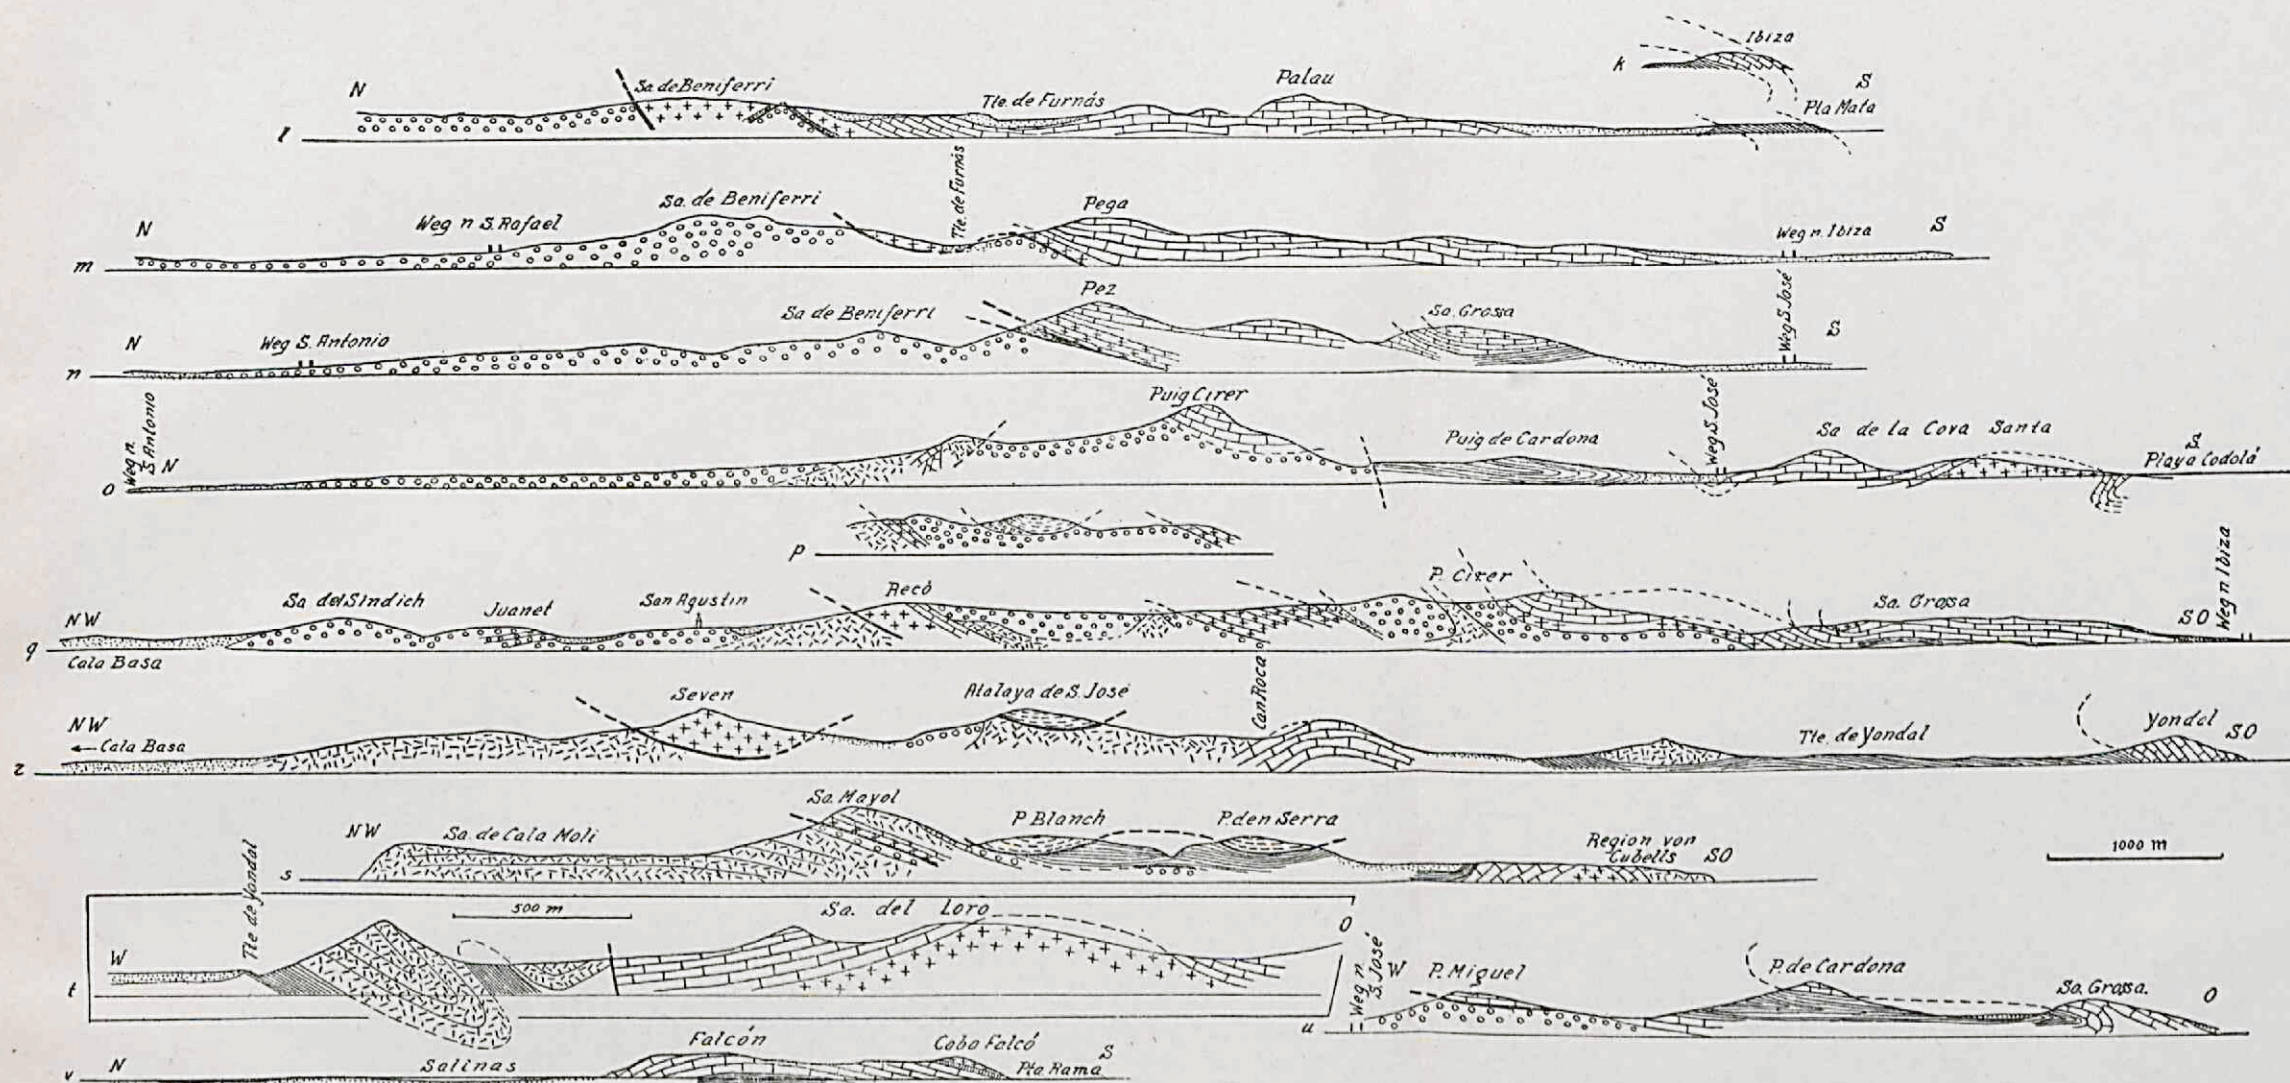 k
Ibiza
N
Sa de Beniferri
Tte. de Furnás
Palau
S
Pla Mata
l
Tte. de Furnás
N
Weg n S. Rafael
Sa. de Beniferri
Pega
Weg n. Ibiza
S
m
N
Weg S. Antonio
Sa de Beniferri
Pez
Sa. Grossa
Weg S. José
S
n
Weg n.
S. Antonio
N
Puig Cirer
Puig de Cardona
Weg S. José
Sa de la Cova Santa
S.
Playa Codolá
o
p
NW
Sa del Sindich
Juanet
San Agustin
Recó
P. Cirer
Sa. Grossa
SO
Weg n. Ibiza
q
Cala Basa
NW
← Cala Basa
Seven
Atalaya de S. José
Can Roca
Tte. de Yondal
Yondal
SO
r
NW
Sa. de Cala Moli
Sa. Mayol
P. Blanch
P. den Serra
Region von
Cubells
SO
s
1000 m
Tte de Yondal
500 m
Sa. del Loro
O
W
t
Weg n.
S. José
W
P. Miguel
P. de Cardona
Sa. Grossa.
O
u
N
Salinas
Falcón
Cabo Falcó
S
Pta Rama
v